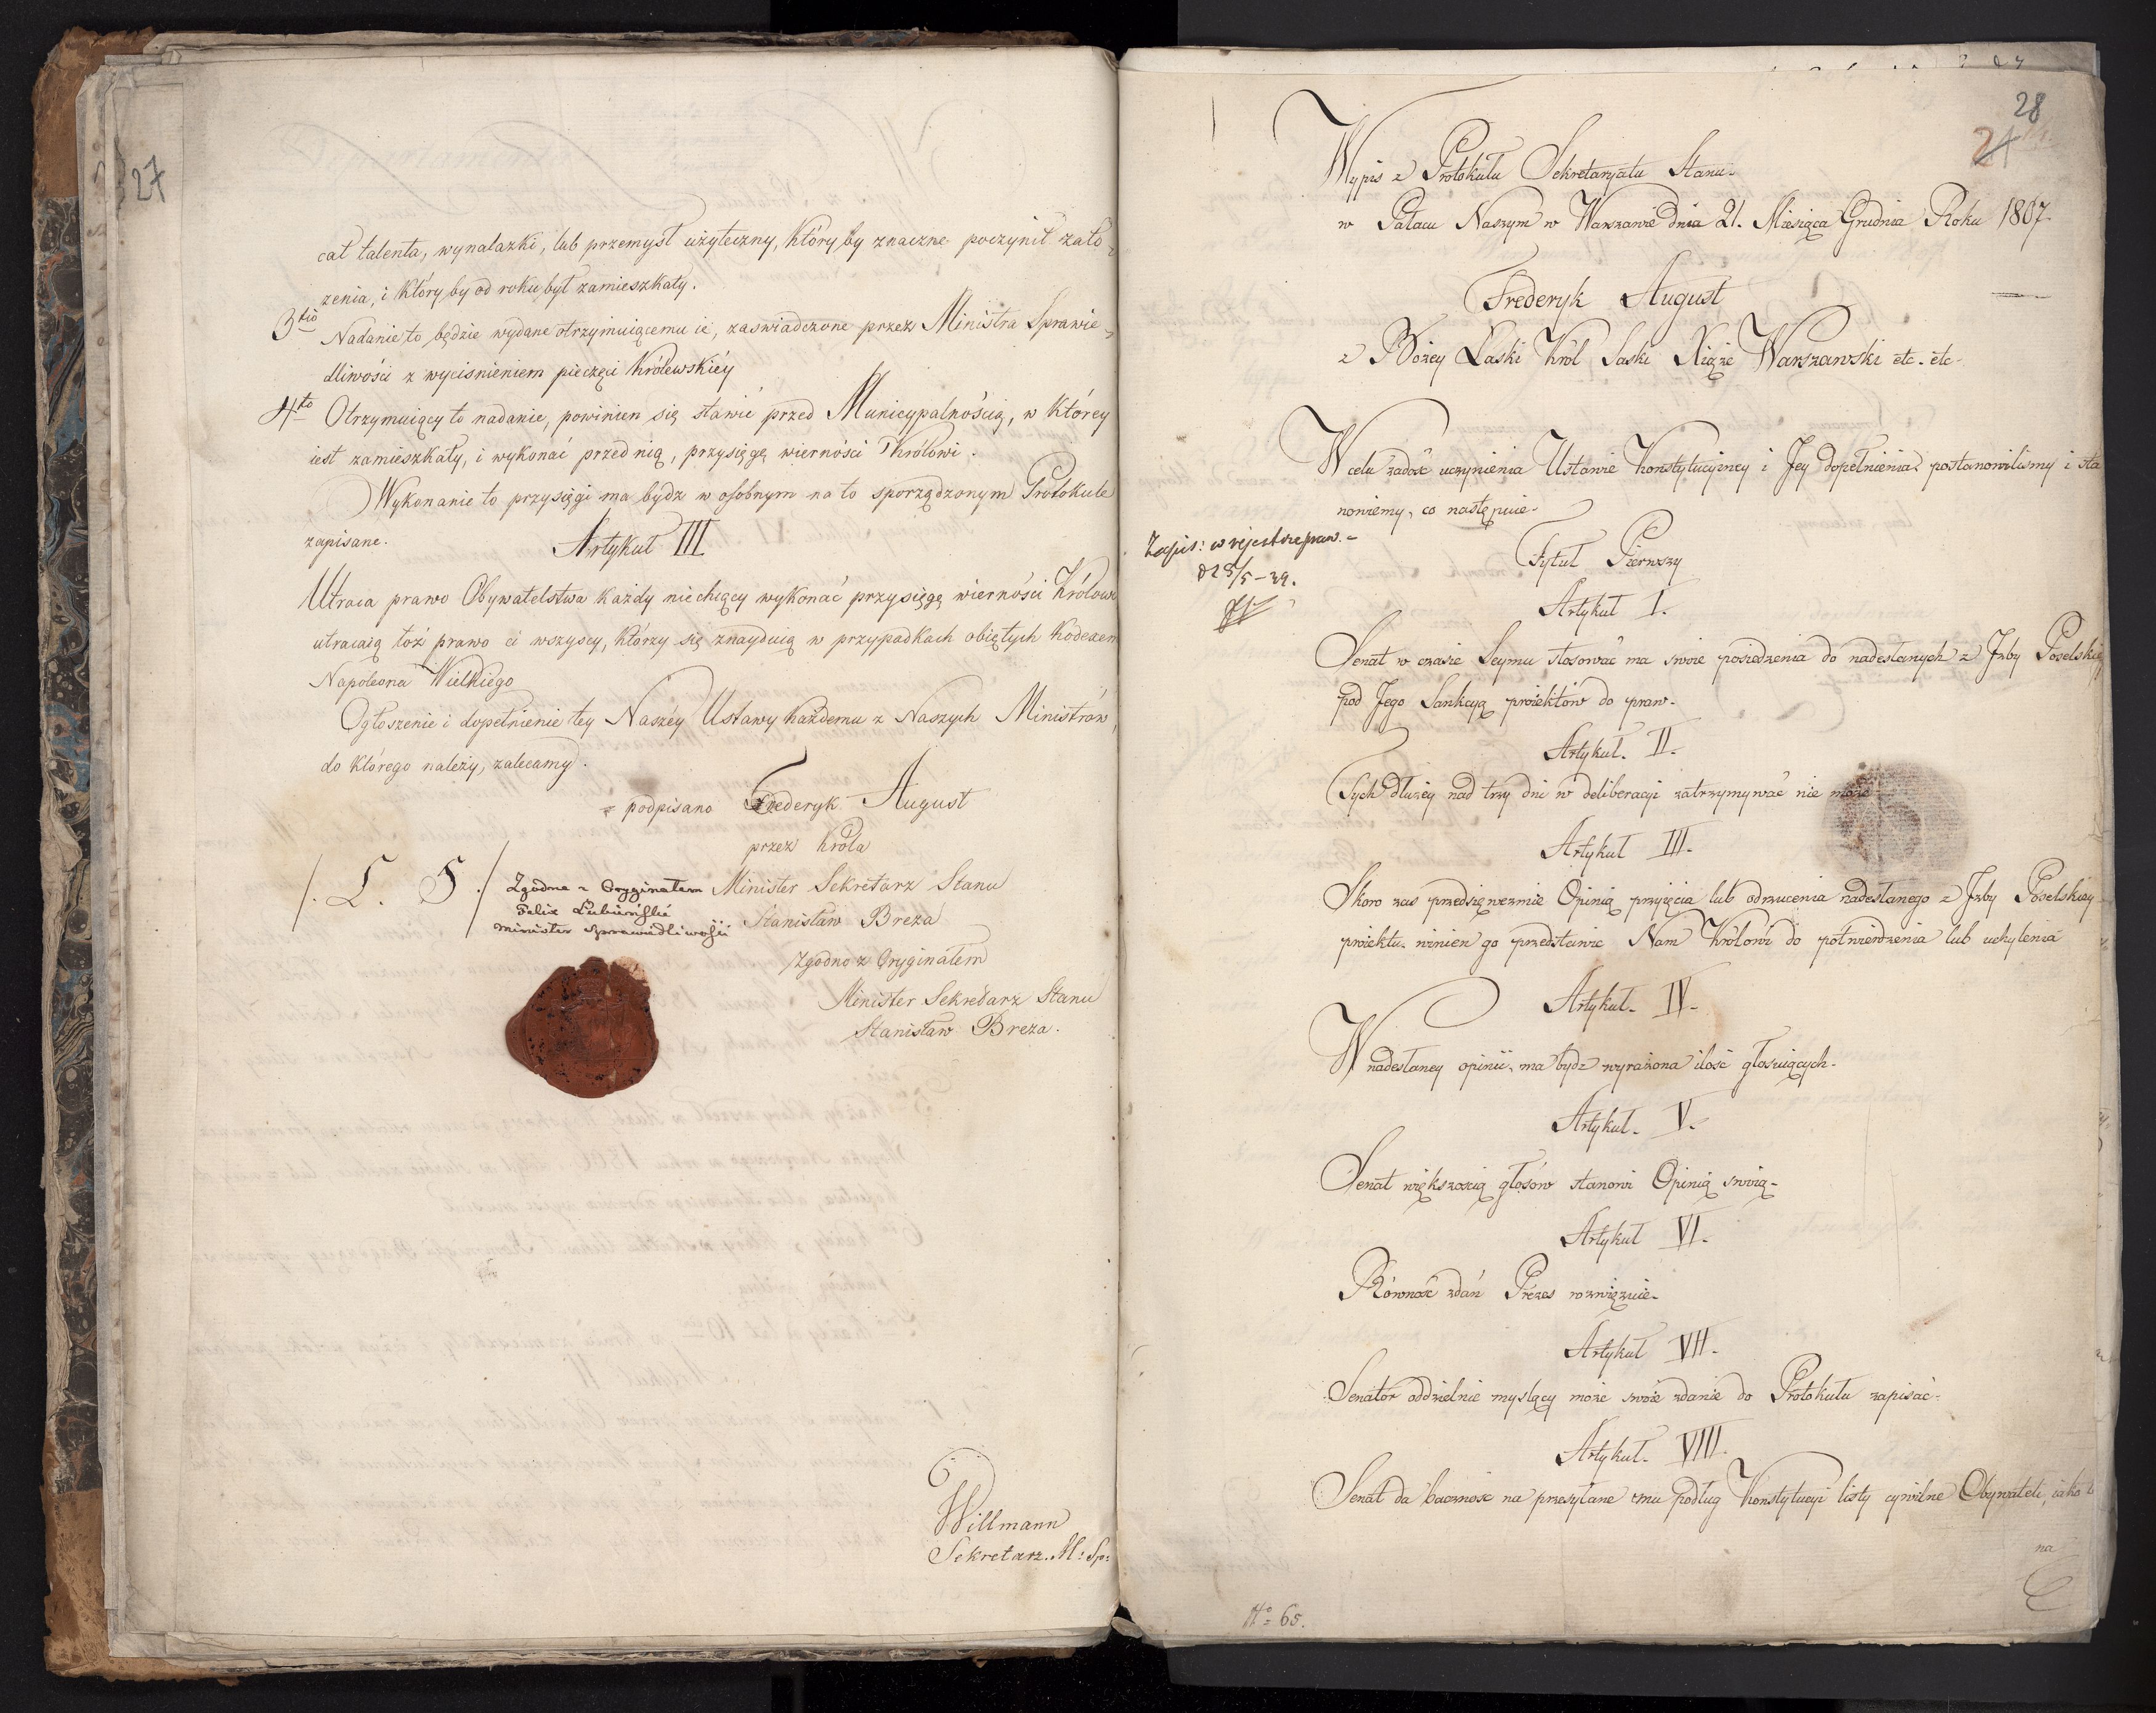 27
cał talenta, wynalazki, lub przemysł użyteczny, który by znaczne poczynił zało-
żenia, i który by od roku był zamieszkały.
3tio Nadanie to będzie wydane otrzymuiącemu ie, zaswiadczone przez Ministra Sprawie-
dliwości z wycisnieniem pieczęci Królewskiéy
4to Otrzymuiący to nadanie, powinien się stawić przed Municypalnością, w którey
iest zamieszkały, i wykonać przed nią, przysięgę wierności Królowi.
Wykonanie to przysięgi ma bydz w osobnym na to sporządzonym Protokule
zapisane.
Artykuł III
Utraca prawo Obywatelstwa każdy niechcący wykonać przysięgę wierności Królowi
utracaią toż prawo ci wszyscy, którzy się znayduią w przypadkach obiętych Kodexem
Napoleona Wielkiego
Ogłoszenie i dopełnienie tey Naszéy Ustawy każdemu z Naszych Ministrów,
do którego należy, zalecamy.
podpisano Frederyk August
przez Króla
/. L. S ./ Zgodne z Oryginałem Minister Sekretarz Stanu
Felix Łubieński Stanisław Breza
Minister Sprawiedliwości
Zgodno z Oryginałem
Minister Sekretarz Stanu
Stanisław Breza.
Willmann
Sekretarz. M: Sp:
28
Wypis z Protokułu Sekretaryatu Stanu.
w Pałacu Naszym w Warszawie dnia 21. Miesiąca Grudnia Roku 1807
Frederyk August
z Bożey Łaski Król Saski Xiąże Warszawski etc. etc.
W celu zadość uczynienia Ustawie Konstytucyiney i Jey dopełnienia, postanowilismy i sta
nowiemy, co następuie.
Zapis: w rejestrze praw.
d 25/5 – 39.
Tytuł Pierwszy
Artykuł I.
Senat w czasie Seymu stosować ma swoie posiedzenia do nadesłanych z Jzby Poselskiey
pod Jego Sankcyą proiektów do praw.
Artykuł. II.
Tych dłużey nad trzy dni w deliberacyi zatrzymywać nie może
Artykuł III.
Skoro zas przedsięwezmie Opinią przyięcia lub odrzucenia nadesłanego z Jzby Poselskiey
proiektu, winien go przedstawić Nam Królowi do potwierdzenia lub uchylenia
Artykuł. IV.
W nadesłaney opinii, ma bydz wyrażona ilość głosuiących.
Artykuł. V.
Senat większością głosów stanowi Opinią swoią.
Artykuł VI.
Równość zdań Prezes rozwięzuie.
Artykuł VII.
Senator oddzielnie myslący może swoie zdanie do Protokułu zapisać.
Artykuł. VIII.
Senat da baczność na przesyłane mu podług Konstytucyi listy cywilne Obywateli, iako t
na
No 65.